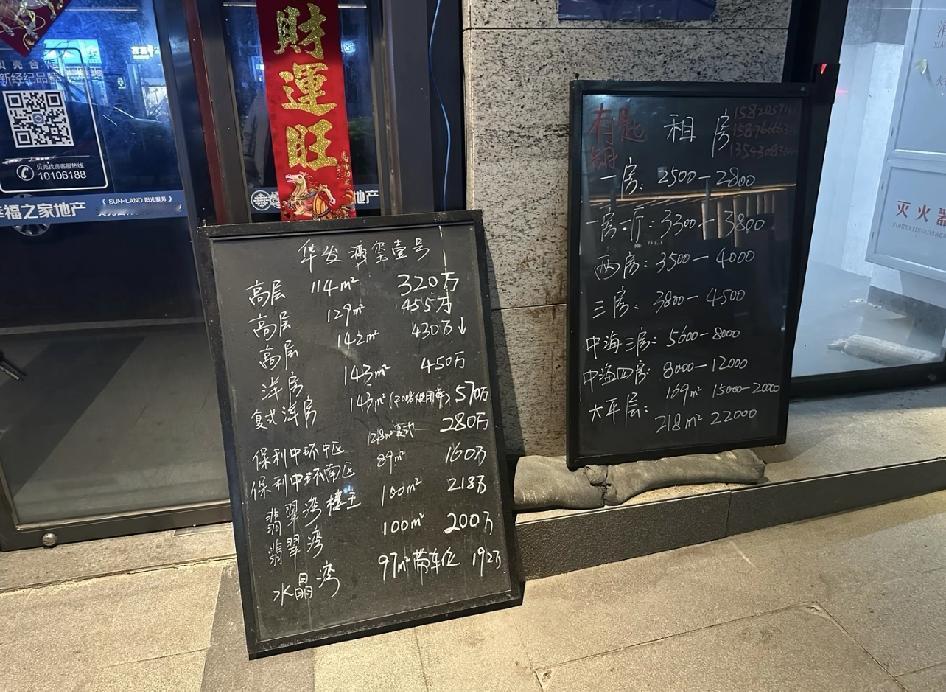 新经纪品牌
10106188
SUN-LAND
幸福之家地产
地产
財運旺
华发湾玺壹号
高层 114m² 320万
高层 129m² 455万
高层 142m² 430万↓
洋房 143m² 450万
复式洋房 143m² 使用率) 570万
保利中环中区 128m² 280万
保利中环南区 89m² 160万
翡翠湾楼王 100m² 218万
翡翠湾 100m² 200万
水晶湾 97m²带车位 192万
有匙 租房
一房: 2500-2800
一房一厅: 3300-3800
两房: 3500-4000
三房: 3800-4500
中海三房: 5600-8000
中海四房: 8000-12000
大平层: 169m² 15000-20000
218m² 22000
灭火器